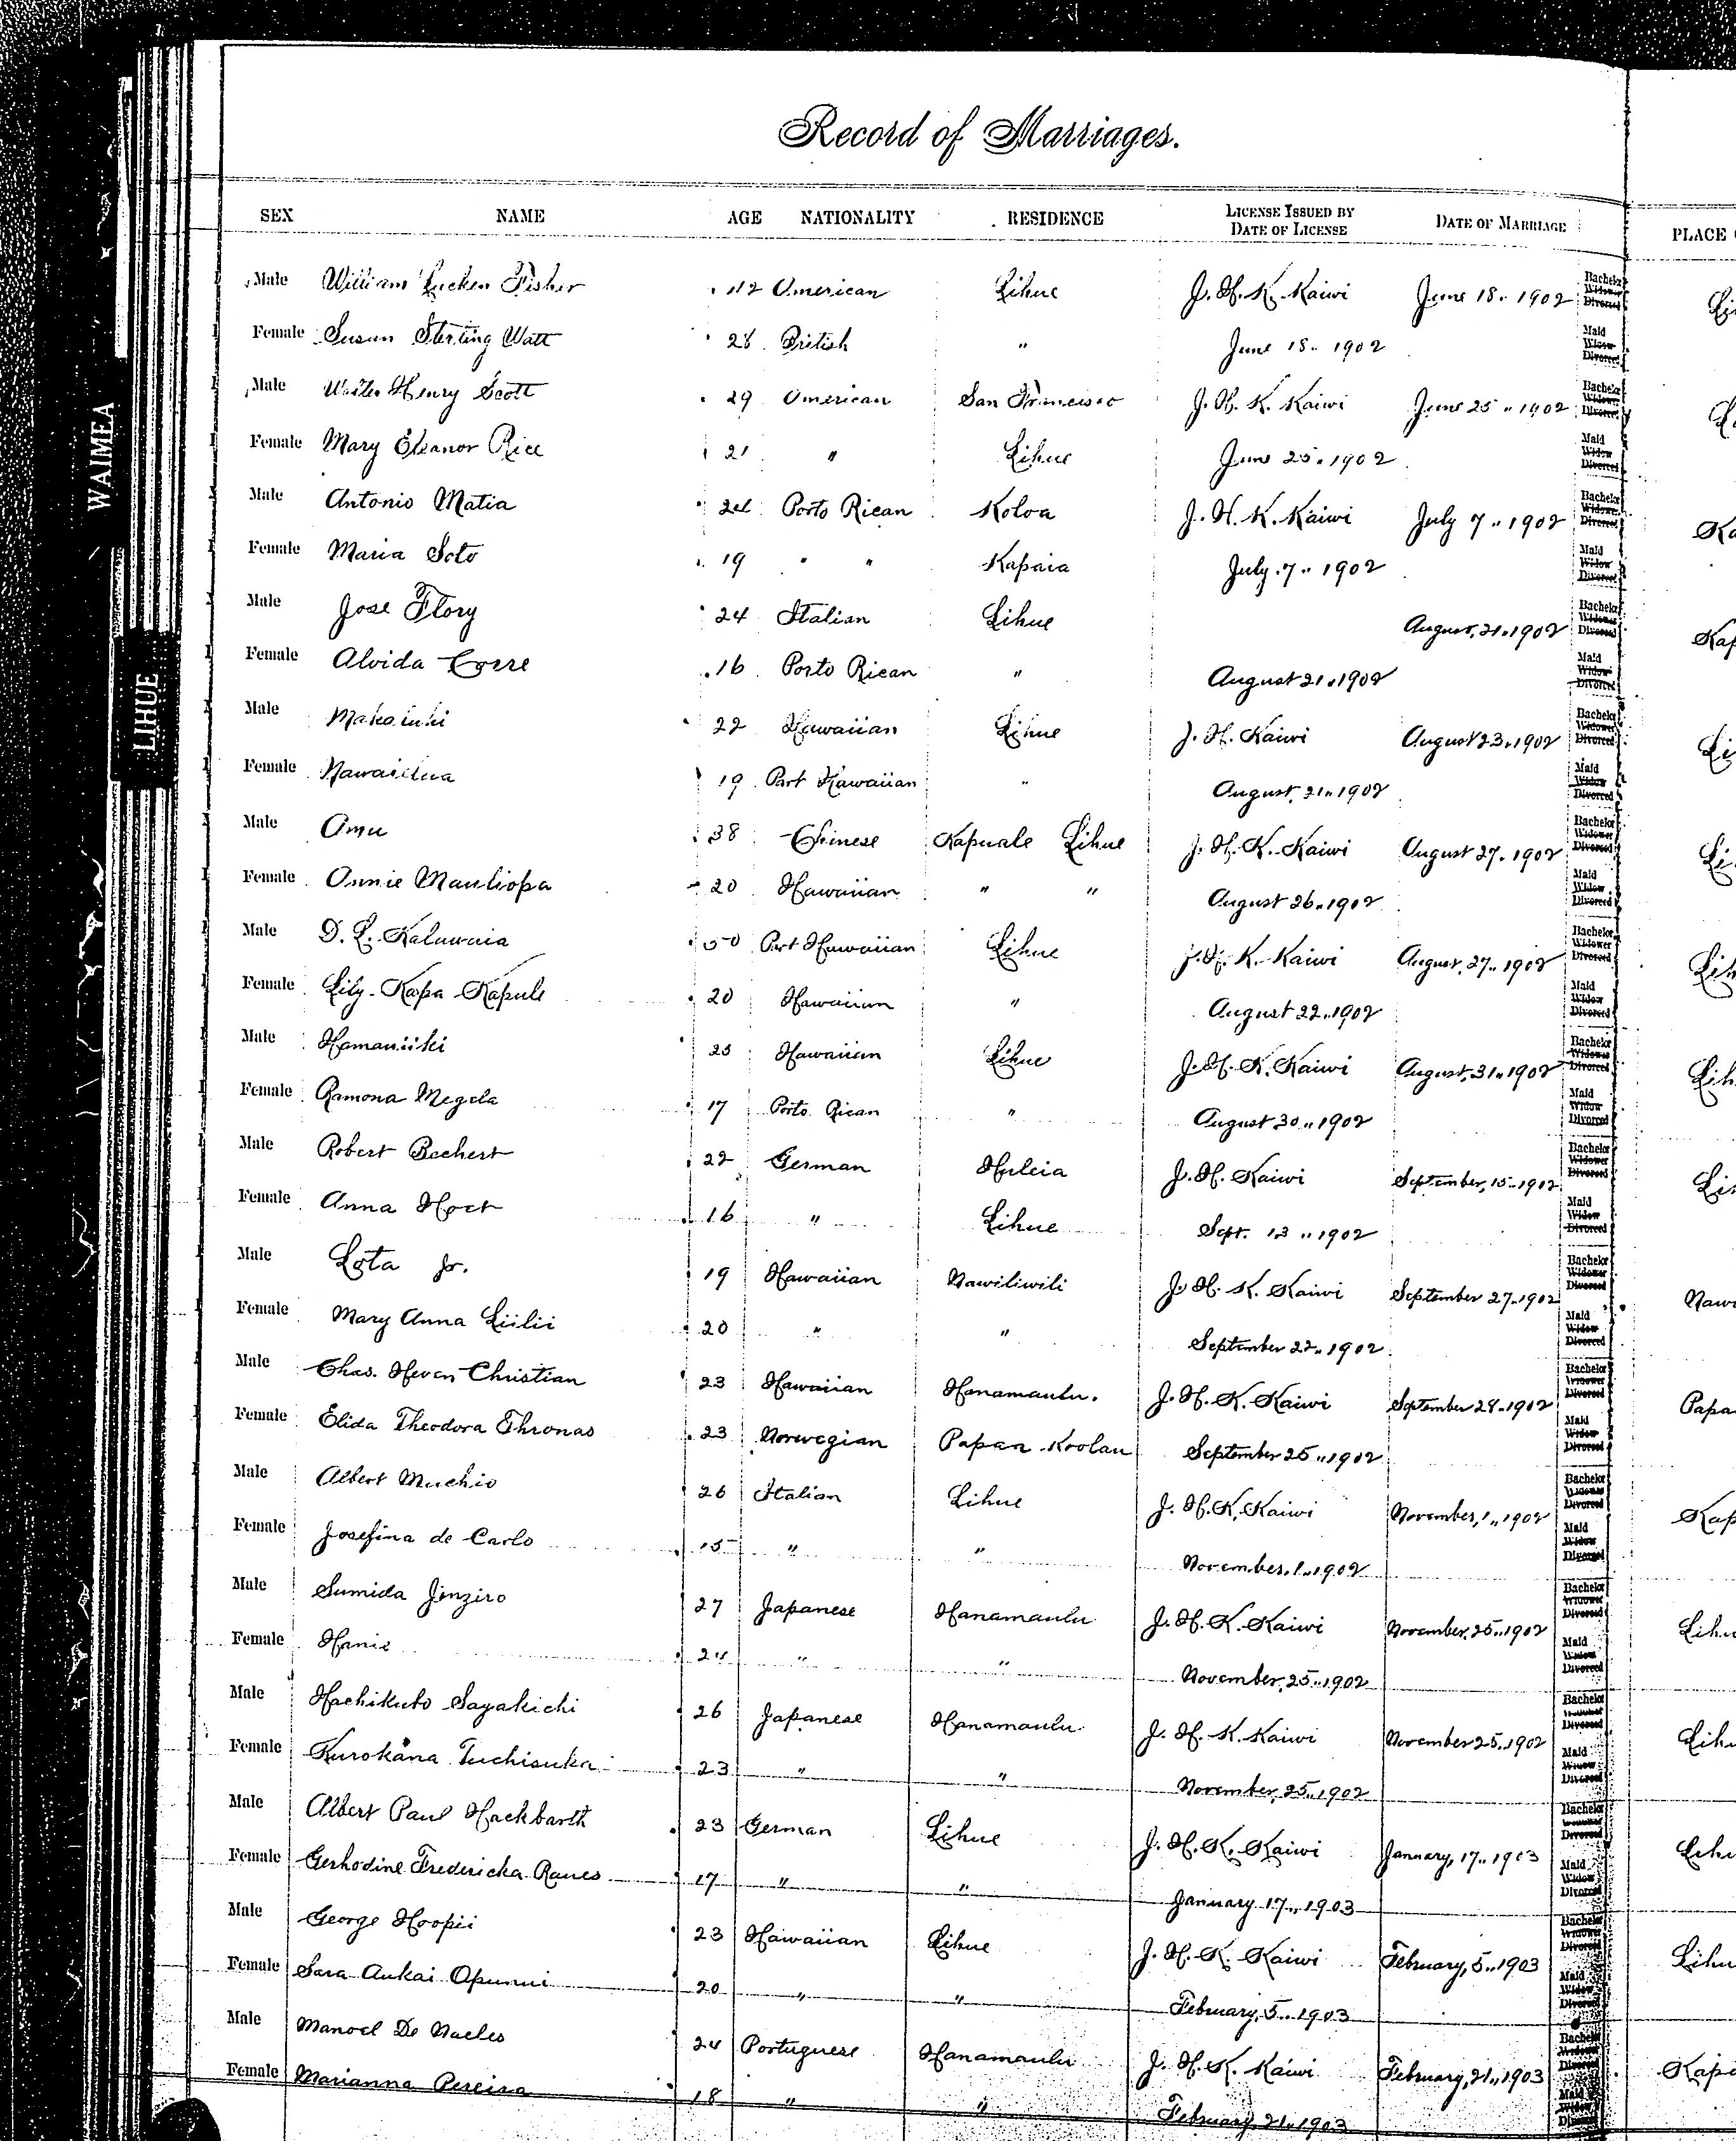 Record of Marriages.
SEX NAME AGE NATIONALITY RESIDENCE LICENSE ISSUED BY DATE OF LICENSE DATE OF MARRIAGE PLACE
Male William Fisher 42 American Lihue J. H. K. Kaiwi June 18. 1902 Bachelor Widower Divorced
Female Susan Sterling Watt British " June 18. 1902 Maid Widow Divorced
Male Walter Henry Scott 29 American San Francisco J. H. K. Kaiwi June 25 " 1902 Bachelor Widower Divorced
Female Mary Eleanor Rice 21 " Lihue June 25. 1902 Maid Widow Divorced
Male Antonio Matia 24 Porto Rican Koloa J. H. K. Kaiwi July 7 " 1902 Bachelor Widower Divorced
Female Maria Soto 19 " " Kapaia July 7 " 1902 Maid Widow Divorced
Male Jose Flory 24 Italian Lihue August, 21. 1902 Bachelor Widower Divorced
Female Alvida Corre 16 Porto Rican " August 21. 1902 Maid Widow Divorced
Male 22 Hawaiian Lihue J. H. Kaiwi August 23. 1902 Bachelor Widower Divorced
Female 19 Part Hawaiian " August, 21. 1902 Maid Widow Divorced
Male Amu 38 Chinese Kapuale Lihue J. H. K. Kaiwi August 27. 1902 Bachelor Widower Divorced
Female Annie Mauliopa 20 Hawaiian " " August 26. 1902 Maid Widow Divorced
Male D. L. Kaluwaia 50 Part Hawaiian Lihue J. H. K. Kaiwi August, 27. 1902 Bachelor Widower Divorced
Female Lily Kapa Kapule 20 Hawaiian " August 22. 1902 Maid Widow Divorced
Male 25 Hawaiian Lihue J. H. K. Kaiwi August, 31. 1902 Bachelor Widower Divorced
Female Ramona Megela 17 Porto Rican " August 30. 1902 Maid Widow Divorced
Male Robert Bechert 22 German Huleia J. H. Kaiwi September, 15. 1902 Bachelor Widower Divorced
Female Anna 16 " Lihue Sept. 13 " 1902 Maid Widow Divorced
Male Lota Jr. 19 Hawaiian Nawiliwili J. H. K. Kaiwi September 27. 1902 Bachelor Widower Divorced
Female Mary Anna Liilii 20 " " September 22. 1902 Maid Widow Divorced
Male Chas. Christian 23 Hawaiian Hanamaulu. J. H. K. Kaiwi September 28. 1902 Bachelor Widower Divorced
Female Elida Theodora Thronas 23 Norwegian Papaa Koolau September 25 " 1902 Maid Widow Divorced
Male Albert Muchio 26 Italian Lihue J. H. K. Kaiwi November, 1. 1902 Bachelor Widower Divorced
Female Josefina de Carlo 15 " " November. 1. 1902 Maid Widow Divorced
Male Sumida Jinziro 27 Japanese Hanamaulu J. H. K. Kaiwi November, 25. 1902 Bachelor Widower Divorced
Female Hanie 24 " " November, 25. 1902 Maid Widow Divorced
Male Hachikubo Sayakichi 26 Japanese Hanamaulu J. H. K. Kaiwi November 25. 1902 Bachelor Divorced
Female Kurokana Tuchisuka 23 " " November, 25. 1902 Maid Widow Divorced
Male Albert Paul Hackbarth 23 German Lihue J. H. K. Kaiwi January, 17. 1903 Bachelor Divorced
Female Gerhodine Fredericka Raues 17 " " January 17. 1903 Maid Widow Divorced
Male George Hoopii 23 Hawaiian Lihue J. H. K. Kaiwi February, 5. 1903 Bachelor Widower Divorced
Female Sara Aukai Opunui 20 " " February, 5. 1903 Maid Widow Divorced
Male Manoel De 24 Portuguese Hanamaulu J. H. K. Kaiwi February, 21. 1903 Bachelor Widower Divorced
Female Marianna Pereira 18 " " February 21. 1903 Maid Widow Divorced
WAIMEA
LIHUE